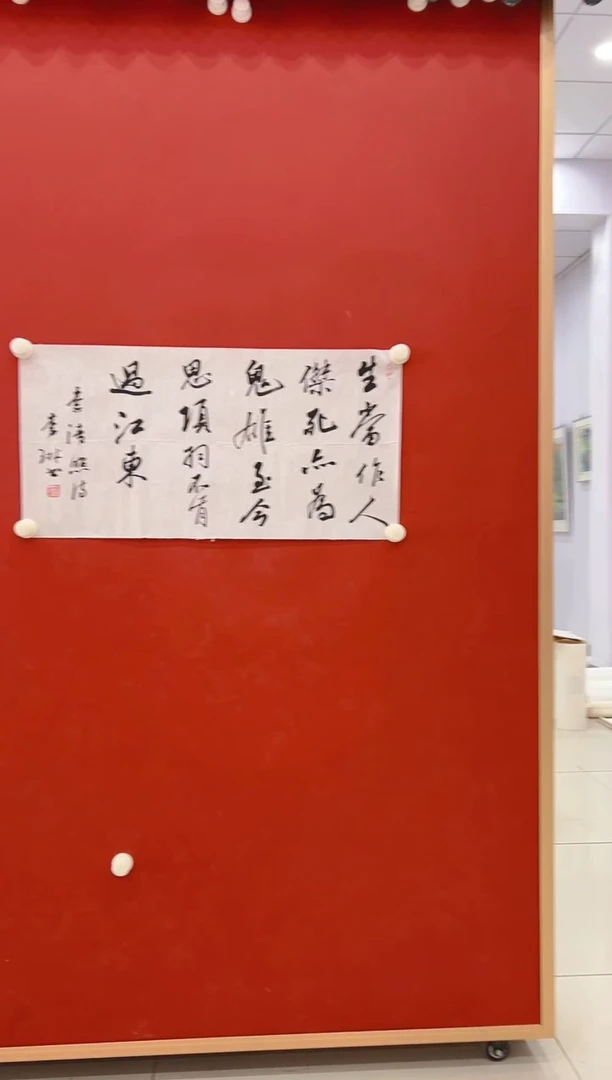 生當作人
傑死亦為
鬼雄至今
思項羽不肯
過江東
李清照詩
李